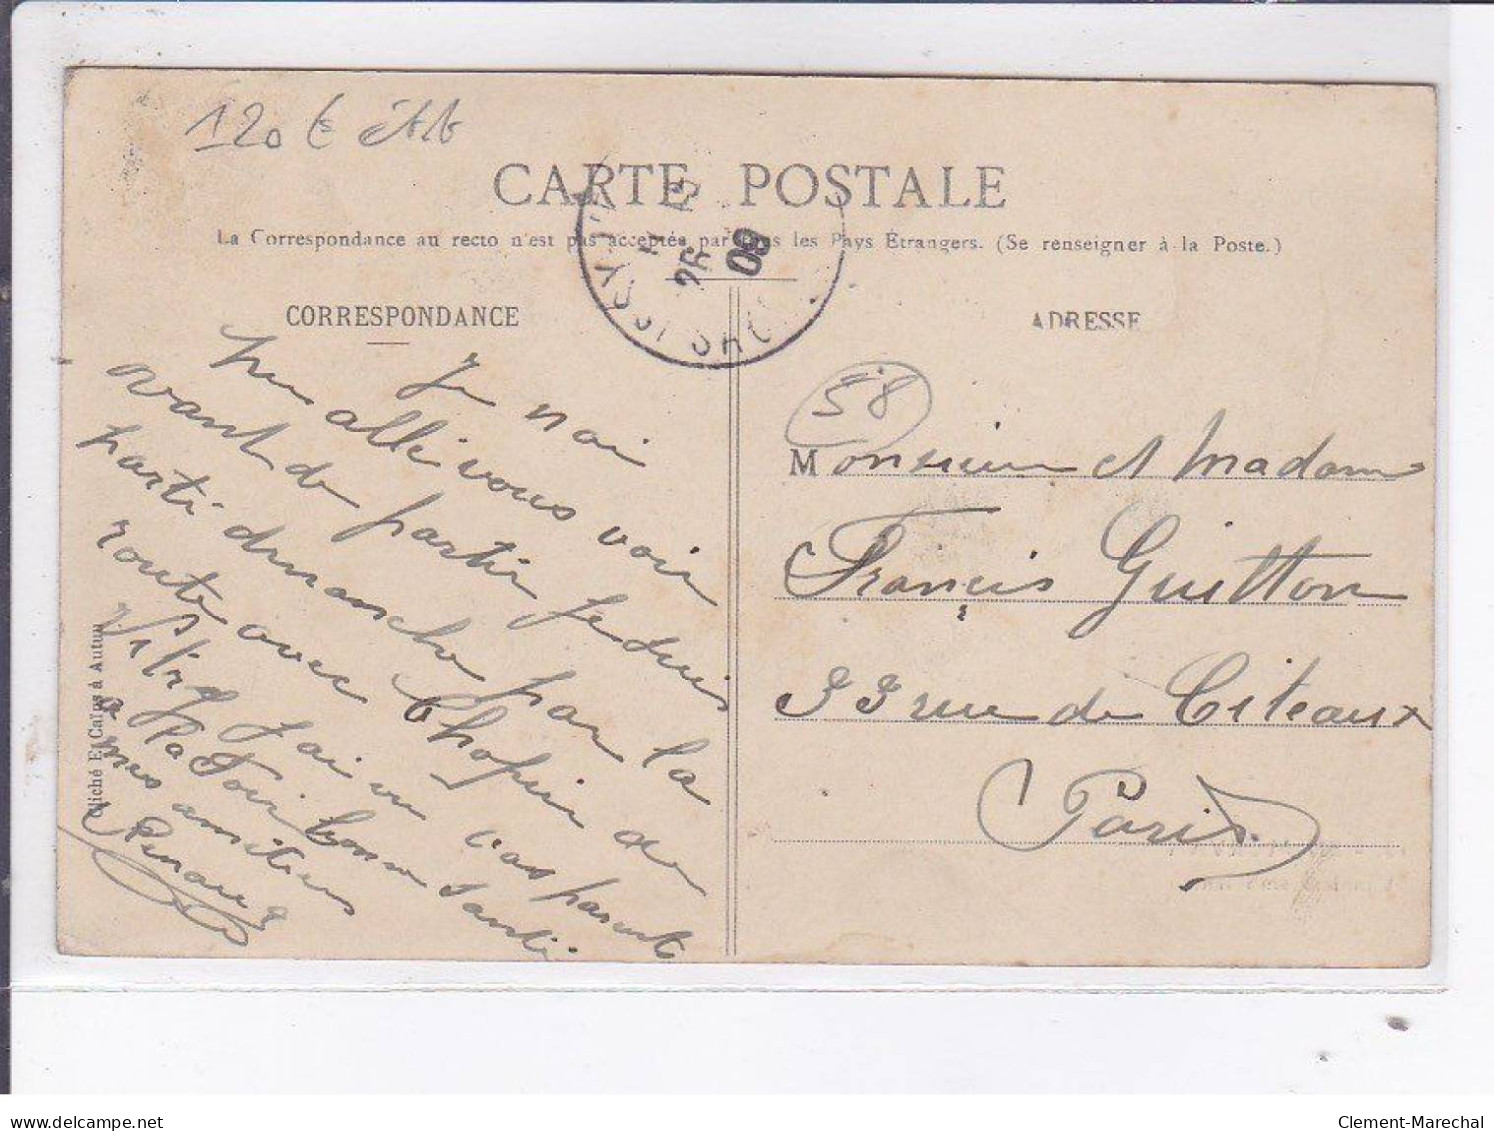 120 €
CARTE POSTALE
La Correspondance au recto n'est pas acceptée par tous les Pays Étrangers. (Se renseigner à la Poste.)
26
09
CORRESPONDANCE
ADRESSE
58
Je nai
pu allé vous voir
avant de partir Je suis
parti dimanche par la
route avec Chopin de
Vitry J'ai vu vos parents
a la Foir bonne Santé
mes amitiers
Monsieur et Madame
Francis Guitton
33 rue de Citeaux
Paris
Cliché E. Calus à Autun
delcampe.net
Clement-Marechal